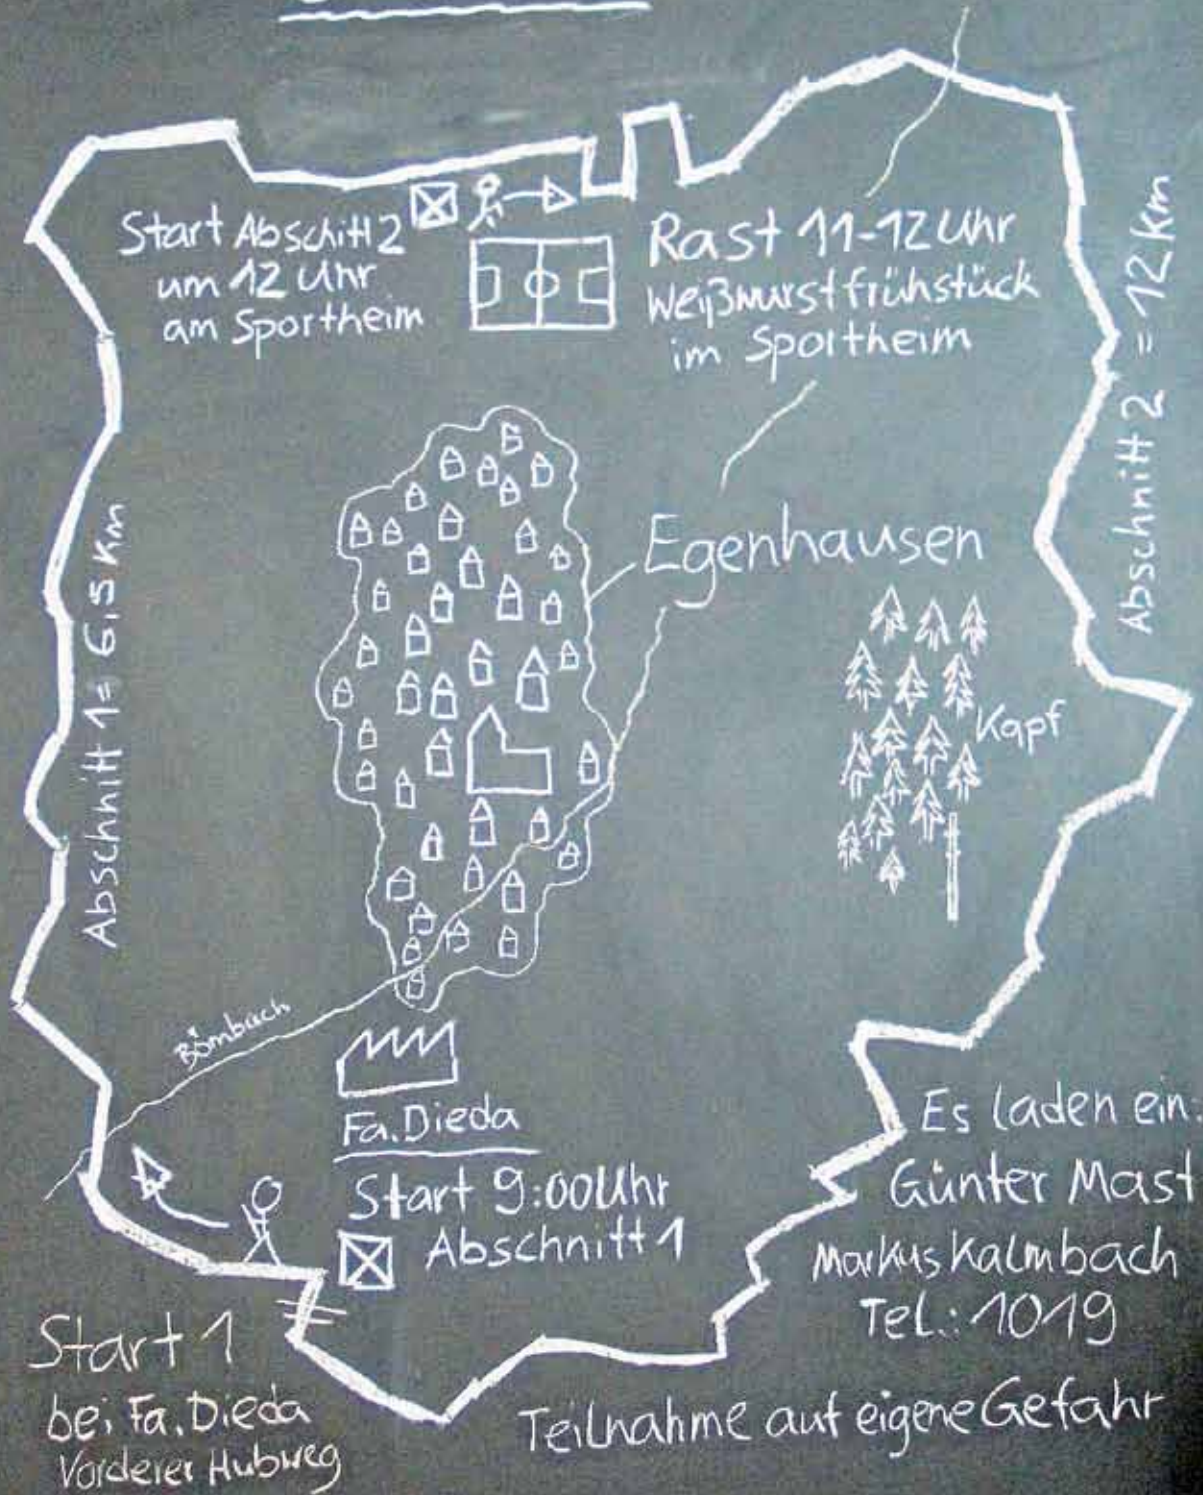 Start Abschitt 2
um 12 Uhr
am Sportheim
Rast 11-12 Uhr
Weißwurstfrühstück
im Sportheim
Abschnitt 2 = 12 km
Egenhausen
Kapf
Abschnitt 1 = 6,5 Km
Bömbach
Fa. Dieda
Start 9:00 Uhr
Abschnitt 1
Es laden ein:
Günter Mast
Markus Kalmbach
Tel.: 1019
Start 1
bei Fa. Dieda
Vorderer Hubweg
Teilnahme auf eigene Gefahr